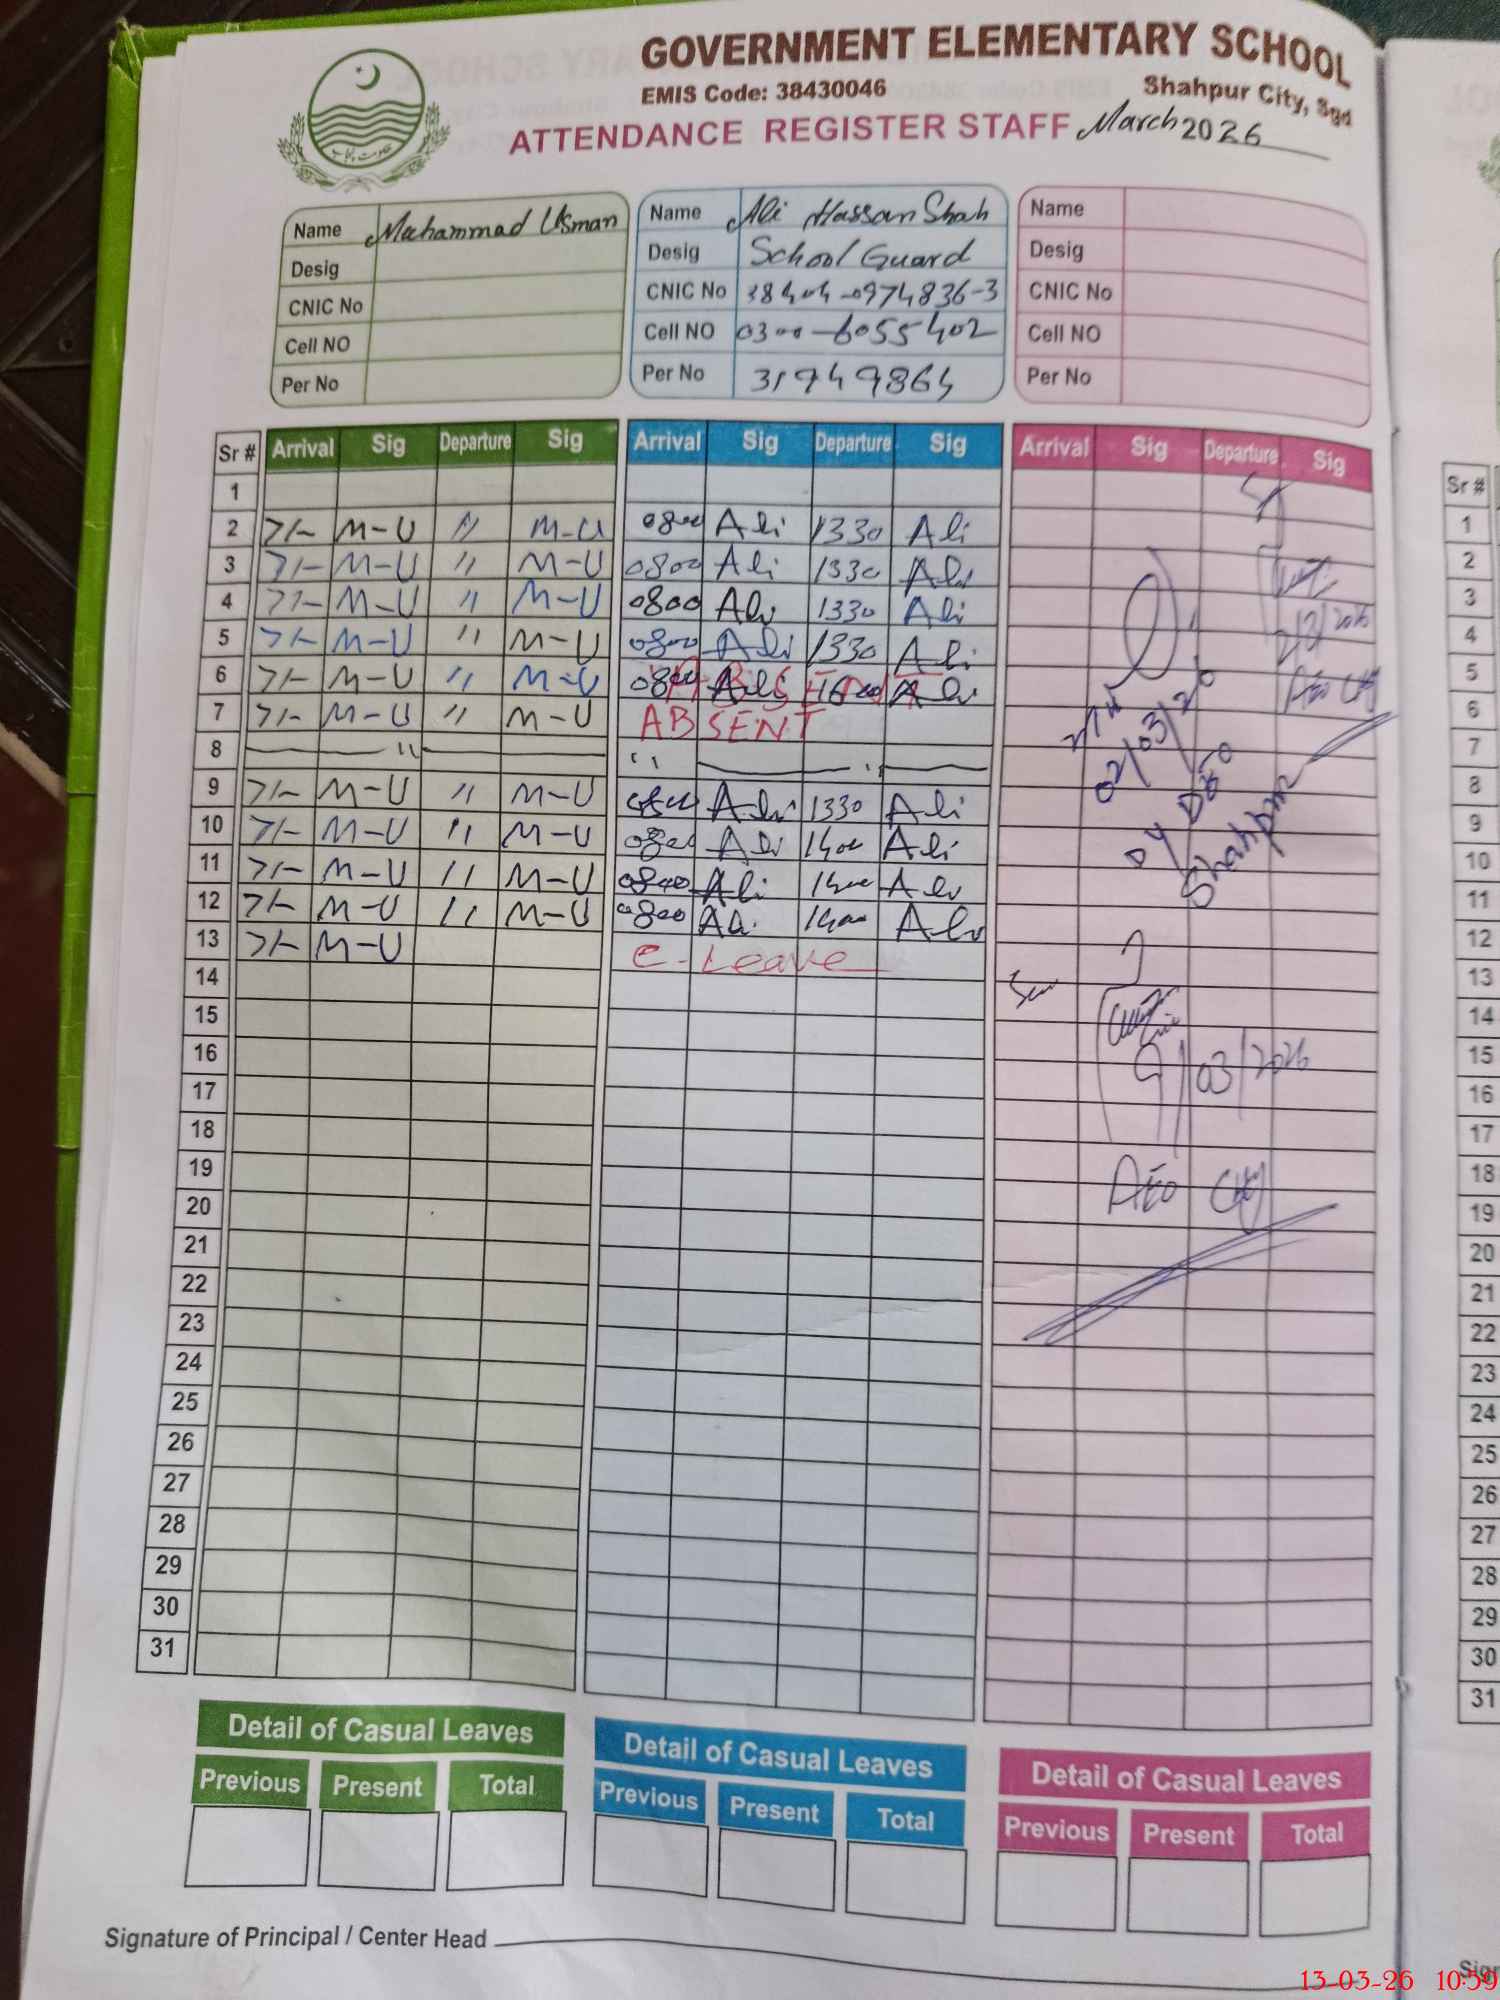 GOVERNMENT ELEMENTARY SCHOOL
EMIS Code: 38430046
Shahpur City, Sgd
ATTENDANCE REGISTER STAFF March 2026
Name Muhammad Usman
Desig
CNIC No
Cell NO
Per No
Name Ali Hassan Shah
Desig School Guard
CNIC No 38404-0974836-3
Cell NO 0300-6055402
Per No 31949864
Name
Desig
CNIC No
Cell NO
Per No
Sr # Arrival Sig Departure Sig Arrival Sig Departure Sig Arrival Sig Departure Sig
1
2 M-U " M-U 0800 Ali 1330 Ali
3 M-U " M-U 0800 Ali 1330 Ali
4 M-U " M-U 0800 Ali 1330 Ali
5 M-U " M-U 0800 Ali 1330 Ali
6 M-U " M-U 0800 Ali Ali
7 M-U " M-U ABSENT
8 " " "
9 M-U " M-U Ali 1330 Ali
10 M-U " M-U 0800 Ali 1400 Ali
11 M-U " M-U 0800 Ali 1400 Ali
12 M-U " M-U 0800 Ali 1400 Ali
13 M-U C-Leave
14
15
16
17
18
19
20
21
22
23
24
25
26
27
28
29
30
31
2/3/2026
AEO City
02/03/26
Dy DEO
Shahpur
9/03/2026
AEO City
Detail of Casual Leaves
Previous Present Total
Detail of Casual Leaves
Previous Present Total
Detail of Casual Leaves
Previous Present Total
Signature of Principal / Center Head
Sr #
1
2
3
4
5
6
7
8
9
10
11
12
13
14
15
16
17
18
19
20
21
22
23
24
25
26
27
28
29
30
31
13-03-26 10:59